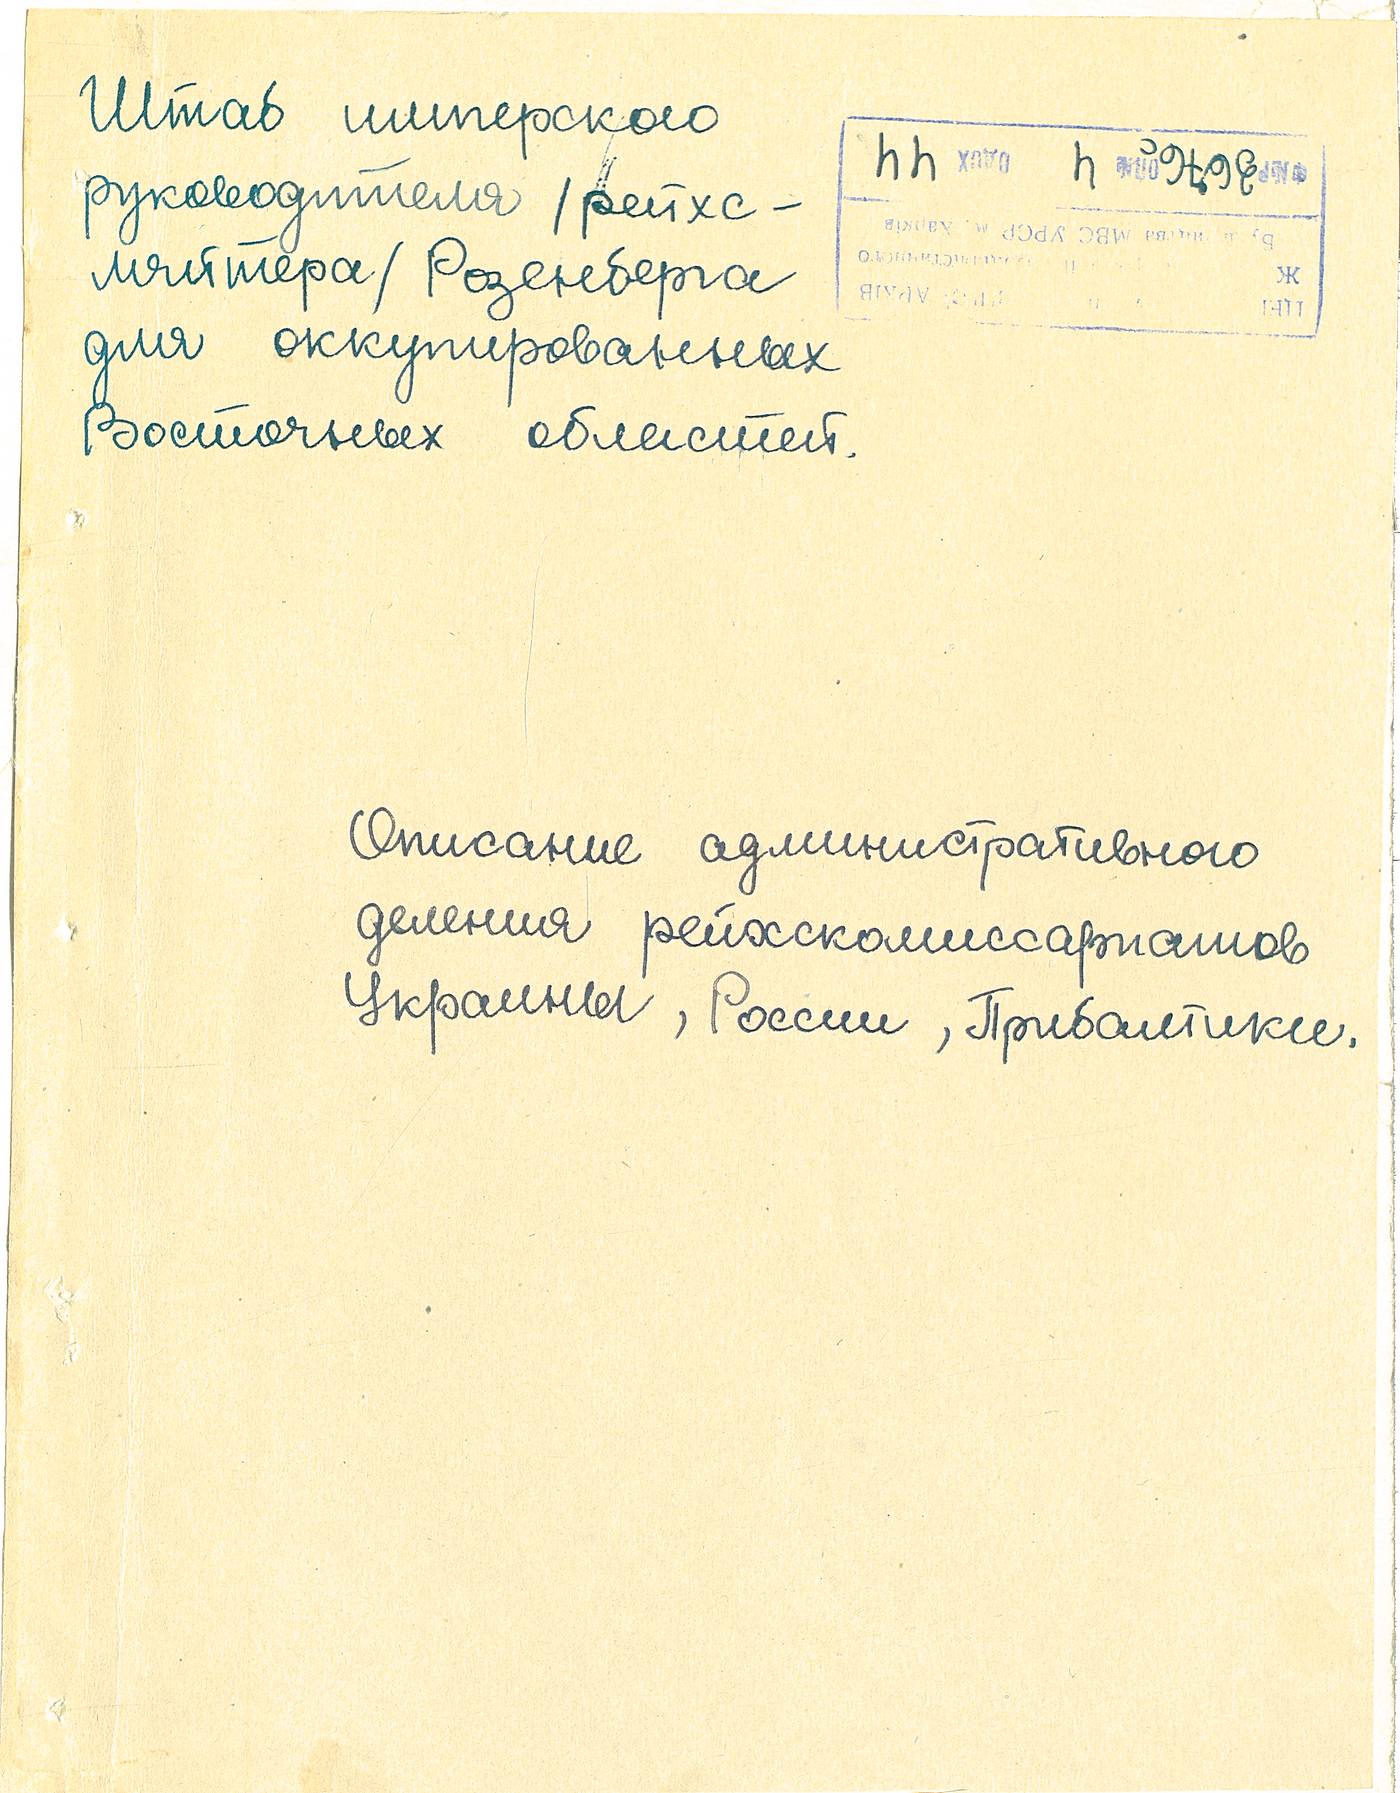 Штаб имперского
руководителя /рейхс-
ляйтера/ Розенберга
для оккупированных
Восточных областей.
ФМР 3676 ОПМ 4 ОДИХ 44
МВС УРСР м. Харків
АРХІВ
Описание административного
деления рейхскомиссариатов
Украины, России, Прибалтики.